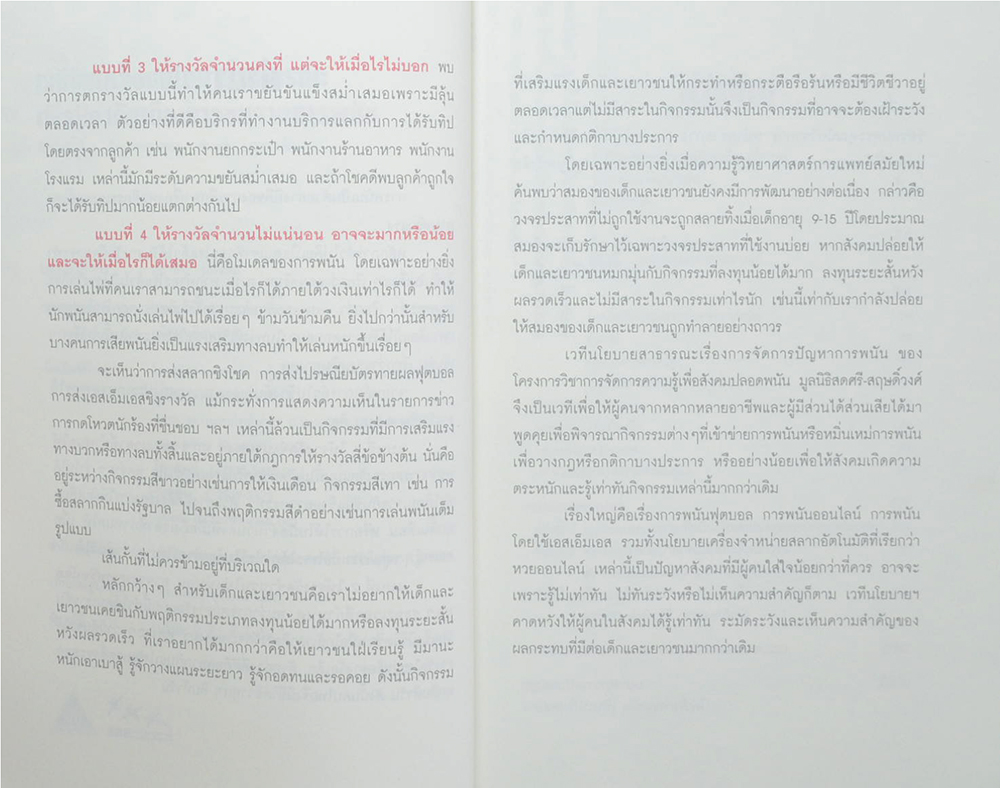 แบบที่ 3 ให้รางวัลจำนวนคงที่ แต่จะให้เมื่อไรไม่บอก พบ
ว่าการตกรางวัลแบบนี้ทำให้คนเราขยันขันแข็งสม่ำเสมอเพราะมีลุ้น
ตลอดเวลา ตัวอย่างที่ดีคือบริกรที่ทำงานบริการแลกกับการได้รับทิป
โดยตรงจากลูกค้า เช่น พนักงานยกกระเป๋า พนักงานร้านอาหาร พนักงาน
โรงแรม เหล่านี้มักมีระดับความขยันสม่ำเสมอ และถ้าโชคดีพบลูกค้าถูกใจ
ก็จะได้รับทิปมากน้อยแตกต่างกันไป
แบบที่ 4 ให้รางวัลจำนวนไม่แน่นอน อาจจะมากหรือน้อย
และจะให้เมื่อไรก็ได้เสมอ นี่คือโมเดลของการพนัน โดยเฉพาะอย่างยิ่ง
การเล่นไพ่ที่คนเราสามารถชนะเมื่อไรก็ได้ภายใต้วงเงินเท่าไรก็ได้ ทำให้
นักพนันสามารถนั่งเล่นไพ่ไปได้เรื่อยๆ ข้ามวันข้ามคืน ยิ่งไปกว่านั้นสำหรับ
บางคนการเสียพนันยิ่งเป็นแรงเสริมทางลบทำให้เล่นหนักขึ้นเรื่อยๆ
จะเห็นว่าการส่งสลากชิงโชค การส่งไปรษณียบัตรทายผลฟุตบอล
การส่งเอสเอ็มเอสชิงรางวัล แม้กระทั่งการแสดงความเห็นในรายการข่าว
การกดโหวตนักร้องที่ชื่นชอบ ฯลฯ เหล่านี้ล้วนเป็นกิจกรรมที่มีการเสริมแรง
ทางบวกหรือทางลบทั้งสิ้นและอยู่ภายใต้กฎการให้รางวัลสี่ข้อข้างต้น นั่นคือ
อยู่ระหว่างกิจกรรมสีขาวอย่างเช่นการให้เงินเดือน กิจกรรมสีเทา เช่น การ
ซื้อสลากกินแบ่งรัฐบาล ไปจนถึงพฤติกรรมสีดำอย่างเช่นการเล่นพนันเต็ม
รูปแบบ
เส้นกั้นที่ไม่ควรข้ามอยู่ที่บริเวณใด
หลักกว้างๆ สำหรับเด็กและเยาวชนคือเราไม่อยากให้เด็กและ
เยาวชนเคยชินกับพฤติกรรมประเภทลงทุนน้อยได้มากหรือลงทุนระยะสั้น
หวังผลรวดเร็ว ที่เราอยากได้มากกว่าคือให้เยาวชนใฝ่เรียนรู้ มีมานะ
หนักเอาเบาสู้ รู้จักวางแผนระยะยาว รู้จักอดทนและรอคอย ดังนั้นกิจกรรม
ที่เสริมแรงเด็กและเยาวชนให้กระทำหรือกระตือรือร้นหรือมีชีวิตชีวาอยู่
ตลอดเวลาแต่ไม่มีสาระในกิจกรรมนั้นจึงเป็นกิจกรรมที่อาจจะต้องเฝ้าระวัง
และกำหนดกติกาบางประการ
โดยเฉพาะอย่างยิ่งเมื่อความรู้วิทยาศาสตร์การแพทย์สมัยใหม่
ค้นพบว่าสมองของเด็กและเยาวชนยังคงมีการพัฒนาอย่างต่อเนื่อง กล่าวคือ
วงจรประสาทที่ไม่ถูกใช้งานจะถูกสลายทิ้งเมื่อเด็กอายุ 9-15 ปีโดยประมาณ
สมองจะเก็บรักษาไว้เฉพาะวงจรประสาทที่ใช้งานบ่อย หากสังคมปล่อยให้
เด็กและเยาวชนหมกมุ่นกับกิจกรรมที่ลงทุนน้อยได้มาก ลงทุนระยะสั้นหวัง
ผลรวดเร็วและไม่มีสาระในกิจกรรมเท่าไรนัก เช่นนี้เท่ากับเรากำลังปล่อย
ให้สมองของเด็กและเยาวชนถูกทำลายอย่างถาวร
เวทีนโยบายสาธารณะเรื่องการจัดการปัญหาการพนัน ของ
โครงการวิชาการจัดการความรู้เพื่อสังคมปลอดพนัน มูลนิธิสดศรี-สฤษดิ์วงศ์
จึงเป็นเวทีเพื่อให้ผู้คนจากหลากหลายอาชีพและผู้มีส่วนได้ส่วนเสียได้มา
พูดคุยเพื่อพิจารณากิจกรรมต่างๆที่เข้าข่ายการพนันหรือหมิ่นเหม่การพนัน
เพื่อวางกฎหรือกติกาบางประการ หรืออย่างน้อยเพื่อให้สังคมเกิดความ
ตระหนักและรู้เท่าทันกิจกรรมเหล่านี้มากกว่าเดิม
เรื่องใหญ่คือเรื่องการพนันฟุตบอล การพนันออนไลน์ การพนัน
โดยใช้เอสเอ็มเอส รวมทั้งนโยบายเครื่องจำหน่ายสลากอัตโนมัติที่เรียกว่า
หวยออนไลน์ เหล่านี้เป็นปัญหาสังคมที่มีผู้คนใส่ใจน้อยกว่าที่ควร อาจจะ
เพราะรู้ไม่เท่าทัน ไม่ทันระวังหรือไม่เห็นความสำคัญก็ตาม เวทีนโยบายฯ
คาดหวังให้ผู้คนในสังคมได้รู้เท่าทัน ระมัดระวังและเห็นความสำคัญของ
ผลกระทบที่มีต่อเด็กและเยาวชนมากกว่าเดิม